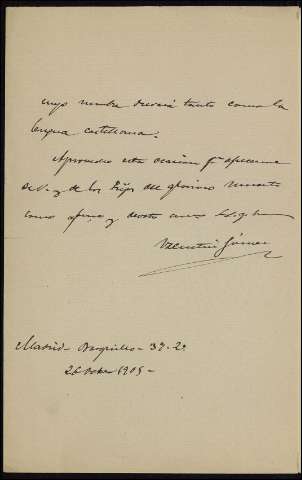 cuyo nombre durará tanto como la
lengua castellana.
Aprovecho esta ocasión pª ofrecerme
de V. y de los hijos del glorioso muerto
como afmo y devoto amigo
Valentín Gómez
Madrid - Barquillo - 39-2º
26 1905 -